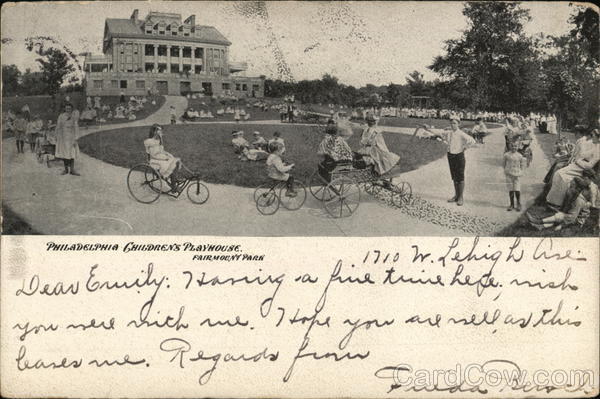 PHILADELPHIA CHILDREN'S PLAYHOUSE.
FAIRMOUNT PARK
1710 W. Lehigh Ave.
Dear Emily: Having a fine time here, wish
you were with me. Hope you are well, as this
leaves me. Regards from
Frieda
CardCow.com